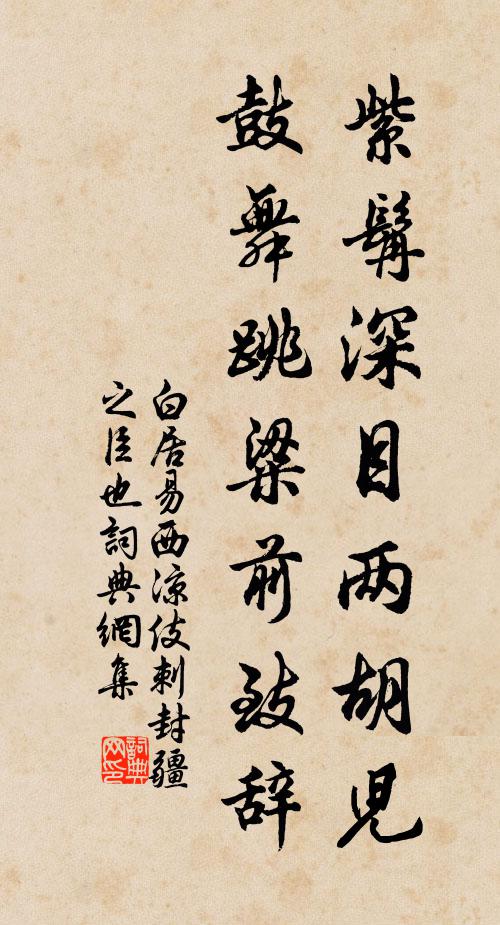 紫髯深目两胡児
鼓舞跳梁前致辞
白居易西凉伎刺封疆
之臣也詞典網集
詞典网印